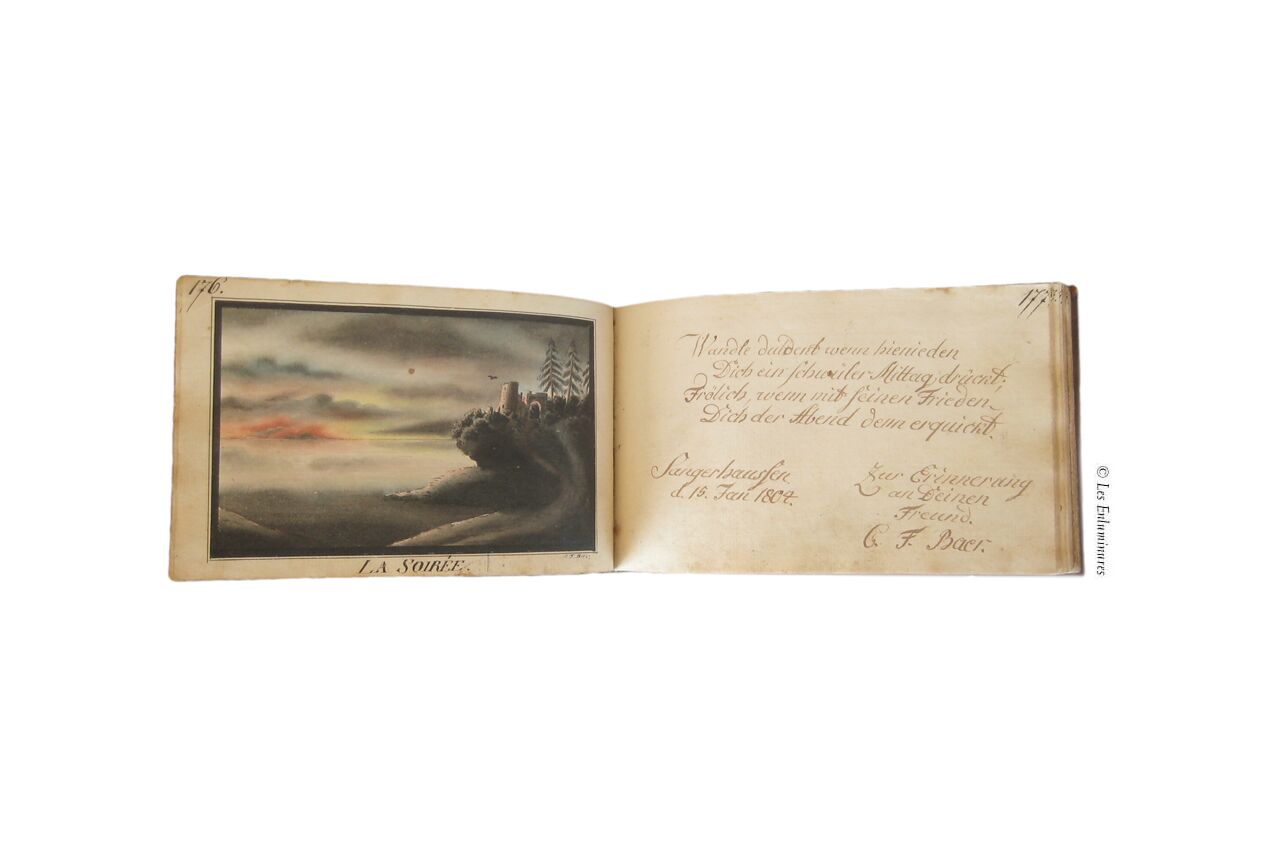 176.
LA SOIRÉE.
177.
Wandle duldent wenn hienieden
Dich ein schwüler Mittag drückt;
Frölich, wenn mit seinen Frieden
Dich der Abend denn erquickt.
Sangerhaussen
d. 15. Jan 1804.
Zur Erinnerung
an Deinen
Freund.
C. F. Baer.
© Les Enluminures